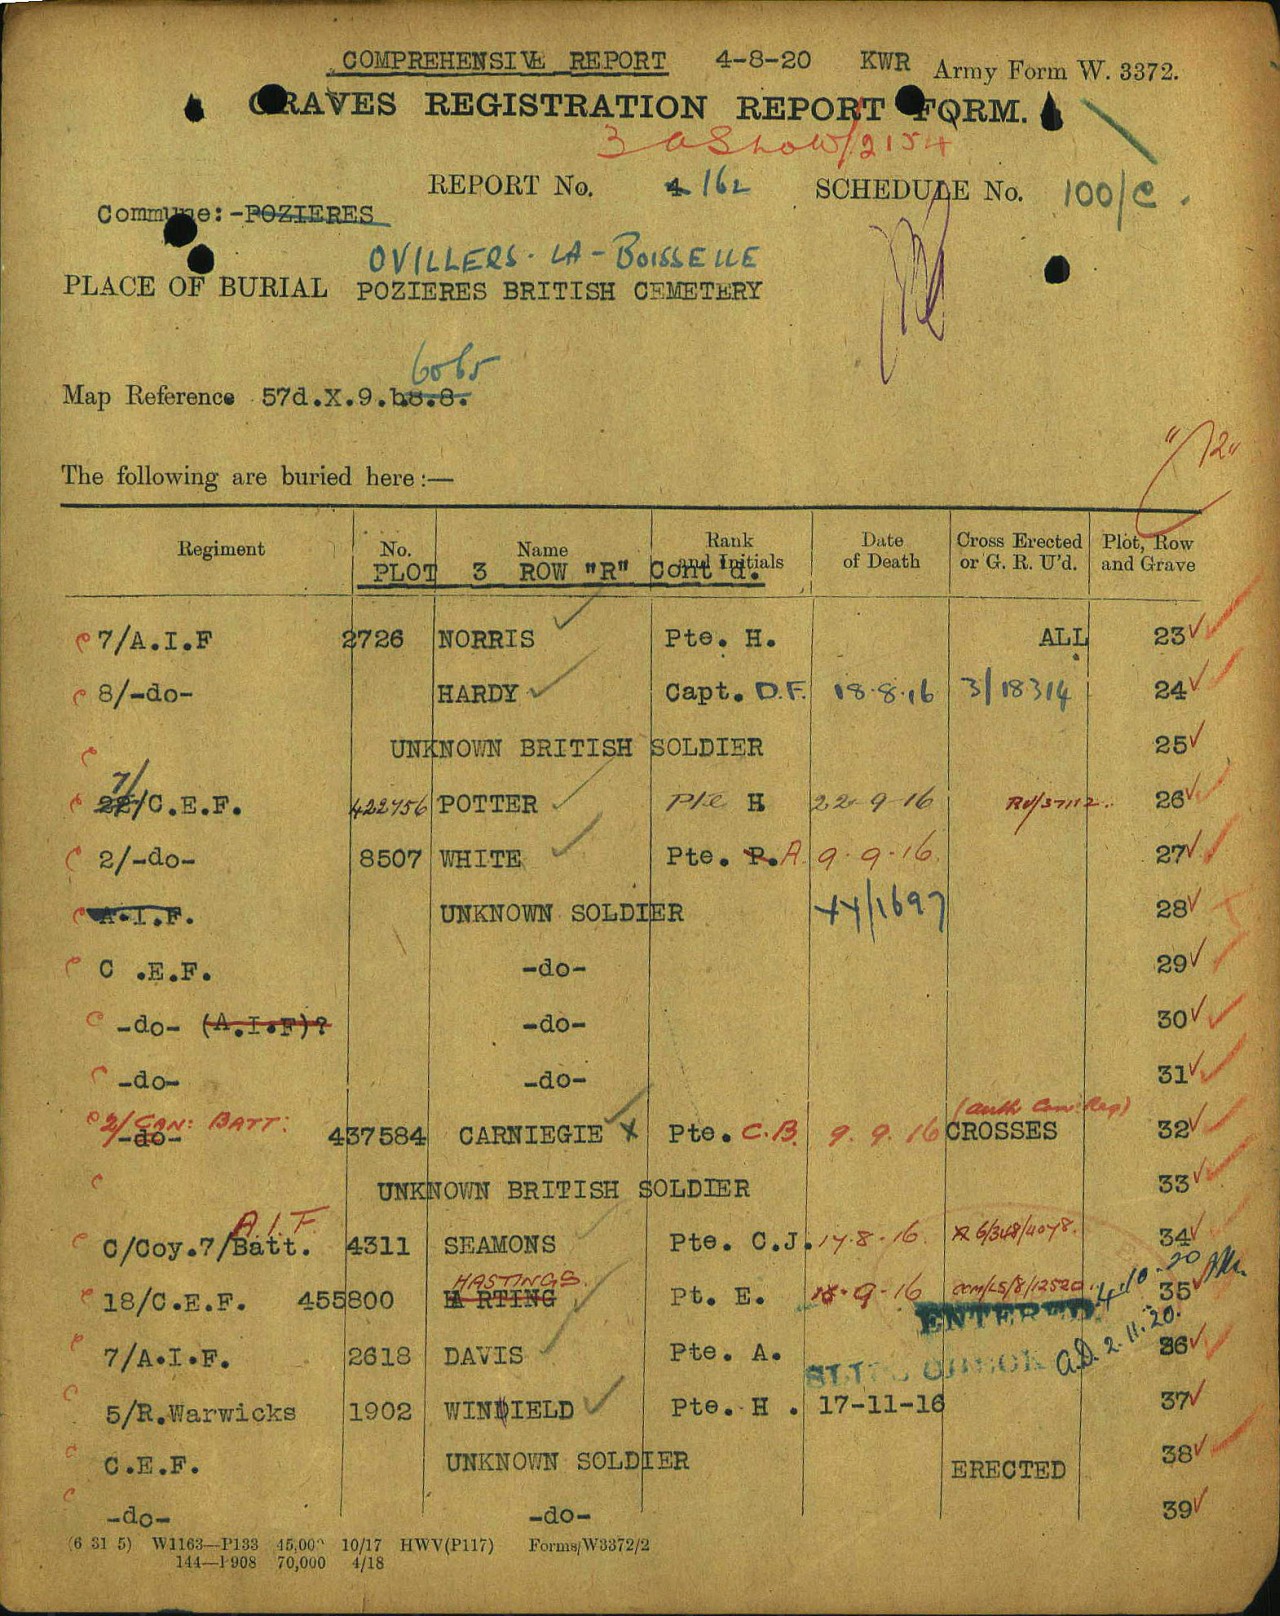 COMPREHENSIVE REPORT 4-8-20 KWR Army Form W. 3372.
GRAVES REGISTRATION REPORT FORM.
3 2154
REPORT No. 4 162 SCHEDULE No. 100/C.
Commune:-POZIERES
OVILLERS-LA-BOISSELLE
PLACE OF BURIAL POZIERES BRITISH CEMETERY
6065
Map Reference 57d.X.9.b8.8.
"12"
The following are buried here:—
Regiment No. Name Rank and Initials Date of Death Cross Erected or G. R. U'd. Plot, Row and Grave
PLOT 3 ROW "R" Cont'd.
7/A.I.F 2726 NORRIS Pte. H. ALL 23
8/-do- HARDY Capt. D.F. 18.8.16 3/18314 24
UNKNOWN BRITISH SOLDIER 25
7/
22/C.E.F. 422756 POTTER Pte H 22-9-16 26
2/-do- 8507 WHITE Pte. P. A. 9.9.16. 27
A.I.F. UNKNOWN SOLDIER 28
C .E.F. -do- 29
-do- (A.I.F)? -do- 30
-do- -do- 31
(auth Can: Reg)
2/CAN: BATT:
-do- 437584 CARNIEGIE X Pte. C.B. 9.9.16 CROSSES 32
UNKNOWN BRITISH SOLDIER 33
A.I.F.
C/Coy.7/Batt. 4311 SEAMONS Pte. C.J. 17-8-16. 34
HASTINGS.
18/C.E.F. 455800 HARTING Pt. E. 9-16 35
ENTERED 4.10.20
7/A.I.F. 2618 DAVIS Pte. A. 36
SLIPS CHECK A.D. 2.11.20.
5/R.Warwicks 1902 WINDIELD Pte. H . 17-11-16 37
C.E.F. UNKNOWN SOLDIER ERECTED 38
-do- -do- 39
(6 31 5) W1163—P133 45,000 10/17 HWV(P117) Forms/W3372/2
144—1908 70,000 4/18